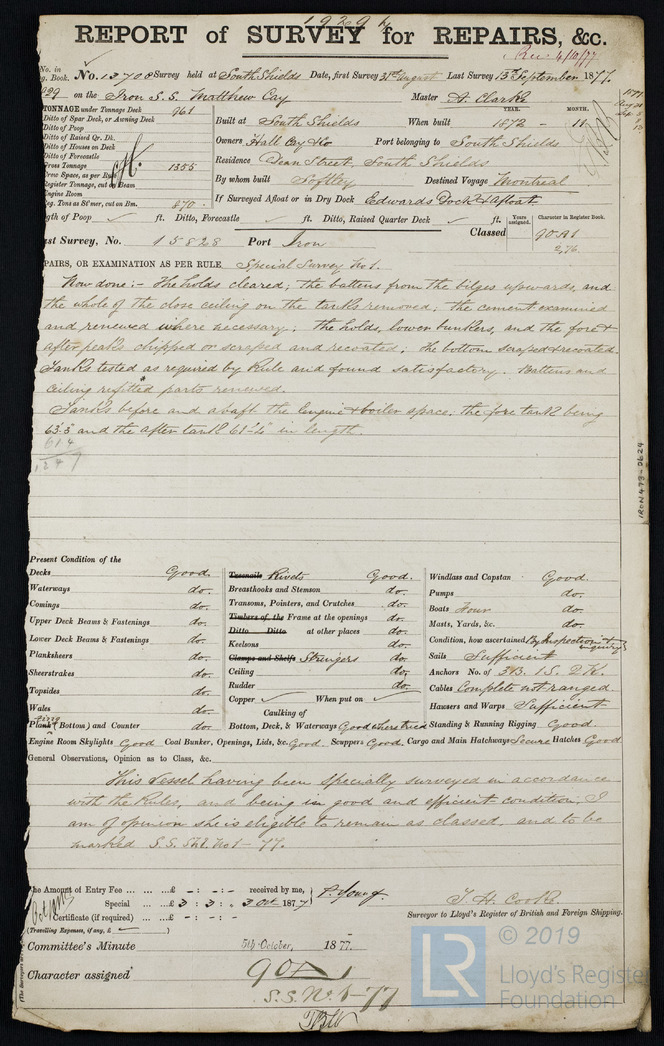 19296
REPORT of SURVEY for REPAIRS, &c.
Rec 4/10/77
No. in
Reg. Book. No. 12708 Survey held at South Shields Date, first Survey 31st August Last Survey 13 September 1877.
929 on the Iron S.S. Matthew Cay Master A. Clarke
TONNAGE under Tonnage Deck 961
Ditto of Spar Deck, or Awning Deck
Ditto of Poop
Ditto of Raised Qr. Dk.
Ditto of Houses on Deck
Ditto of Forecastle
Gross Tonnage 1355
Crew Space, as per Rule
Register Tonnage, cut on Beam
Engine Room
Reg. Tons as 86 mer, cut on Bm. 870
Built at South Shields When built YEAR. 1872 - MONTH. 11
Owners Hall Cay & Co Port belonging to South Shields
Residence Dean Street, South Shields
By whom built Softley Destined Voyage Montreal
If Surveyed Afloat or in Dry Dock Edwards Dock & Afloat
Length of Poop ft. Ditto, Forecastle ft. Ditto, Raised Quarter Deck ft.
Last Survey, No. 15828 Port Iron
Classed Years assigned. Character in Register Book.
90A1
2,76
REPAIRS, OR EXAMINATION AS PER RULE Special Survey No 1.
Now done:- The holds cleared; the battens from the bilges upwards, and
the whole of the close ceiling on the tanks removed; the cement examined
and renewed where necessary; the holds, lower bunkers, and the fore &
after peaks chipped or scraped and recoated; the bottom scraped & recoated.
Tanks tested as required by Rule and found satisfactory. Battens and
Ceiling refitted parts renewed.
Tanks before and abaft the Engine & boiler space: the fore tank being
63.3" and the after tank 61'.4" in length.
61.4
124 7
IRON 473-0624
Present Condition of the
Decks Good.
Waterways do.
Comings do.
Upper Deck Beams & Fastenings do.
Lower Deck Beams & Fastenings do.
Planksheers do.
Sheerstrakes do.
Topsides do.
Wales do.
Plating (Bottom) and Counter do.
Treenails Rivets Good.
Breasthooks and Stemson do.
Transoms, Pointers, and Crutches do.
Timbers of the Frame at the openings do.
Ditto Ditto at other places do.
Keelsons do.
Clamps and Shelfs Stringers do.
Ceiling do.
Rudder do.
Copper When put on
Caulking of
Bottom, Deck, & Waterways Good where tried
Windlass and Capstan Good.
Pumps do.
Boats Four do.
Masts, Yards, &c. do.
Condition, how ascertained By Inspection & inquiry
Sails Sufficient
Anchors No. of 3B. 1S. 2K.
Cables Complete not ranged
Hausers and Warps Sufficient
Standing & Running Rigging Good
Engine Room Skylights Good Coal Bunker, Openings, Lids, &c. Good Scuppers Good Cargo and Main Hatchways Secure Hatches Good
General Observations, Opinion as to Class, &c.
This Vessel having been specially surveyed in accordance
with the Rules, and being in good and efficient condition, I
am of opinion she is eligible to remain as classed, and to be
marked S.S. Shl. No 1 - 77.
The Amount of Entry Fee ... ... ...£ - : - : - received by me,
Special ... ...£ 3 : 3 : . 3 Oct 1877 P. Young.
Certificate (if required) ... ... - : - : -
(Travelling Expenses, if any, £ )
T. H. Cooke
Surveyor to Lloyd's Register of British and Foreign Shipping.
Committee's Minute 5th October, 1877.
Character assigned 90A1
S.S. No. 1-77
LR
© 2019
Lloyd's Register
Foundation